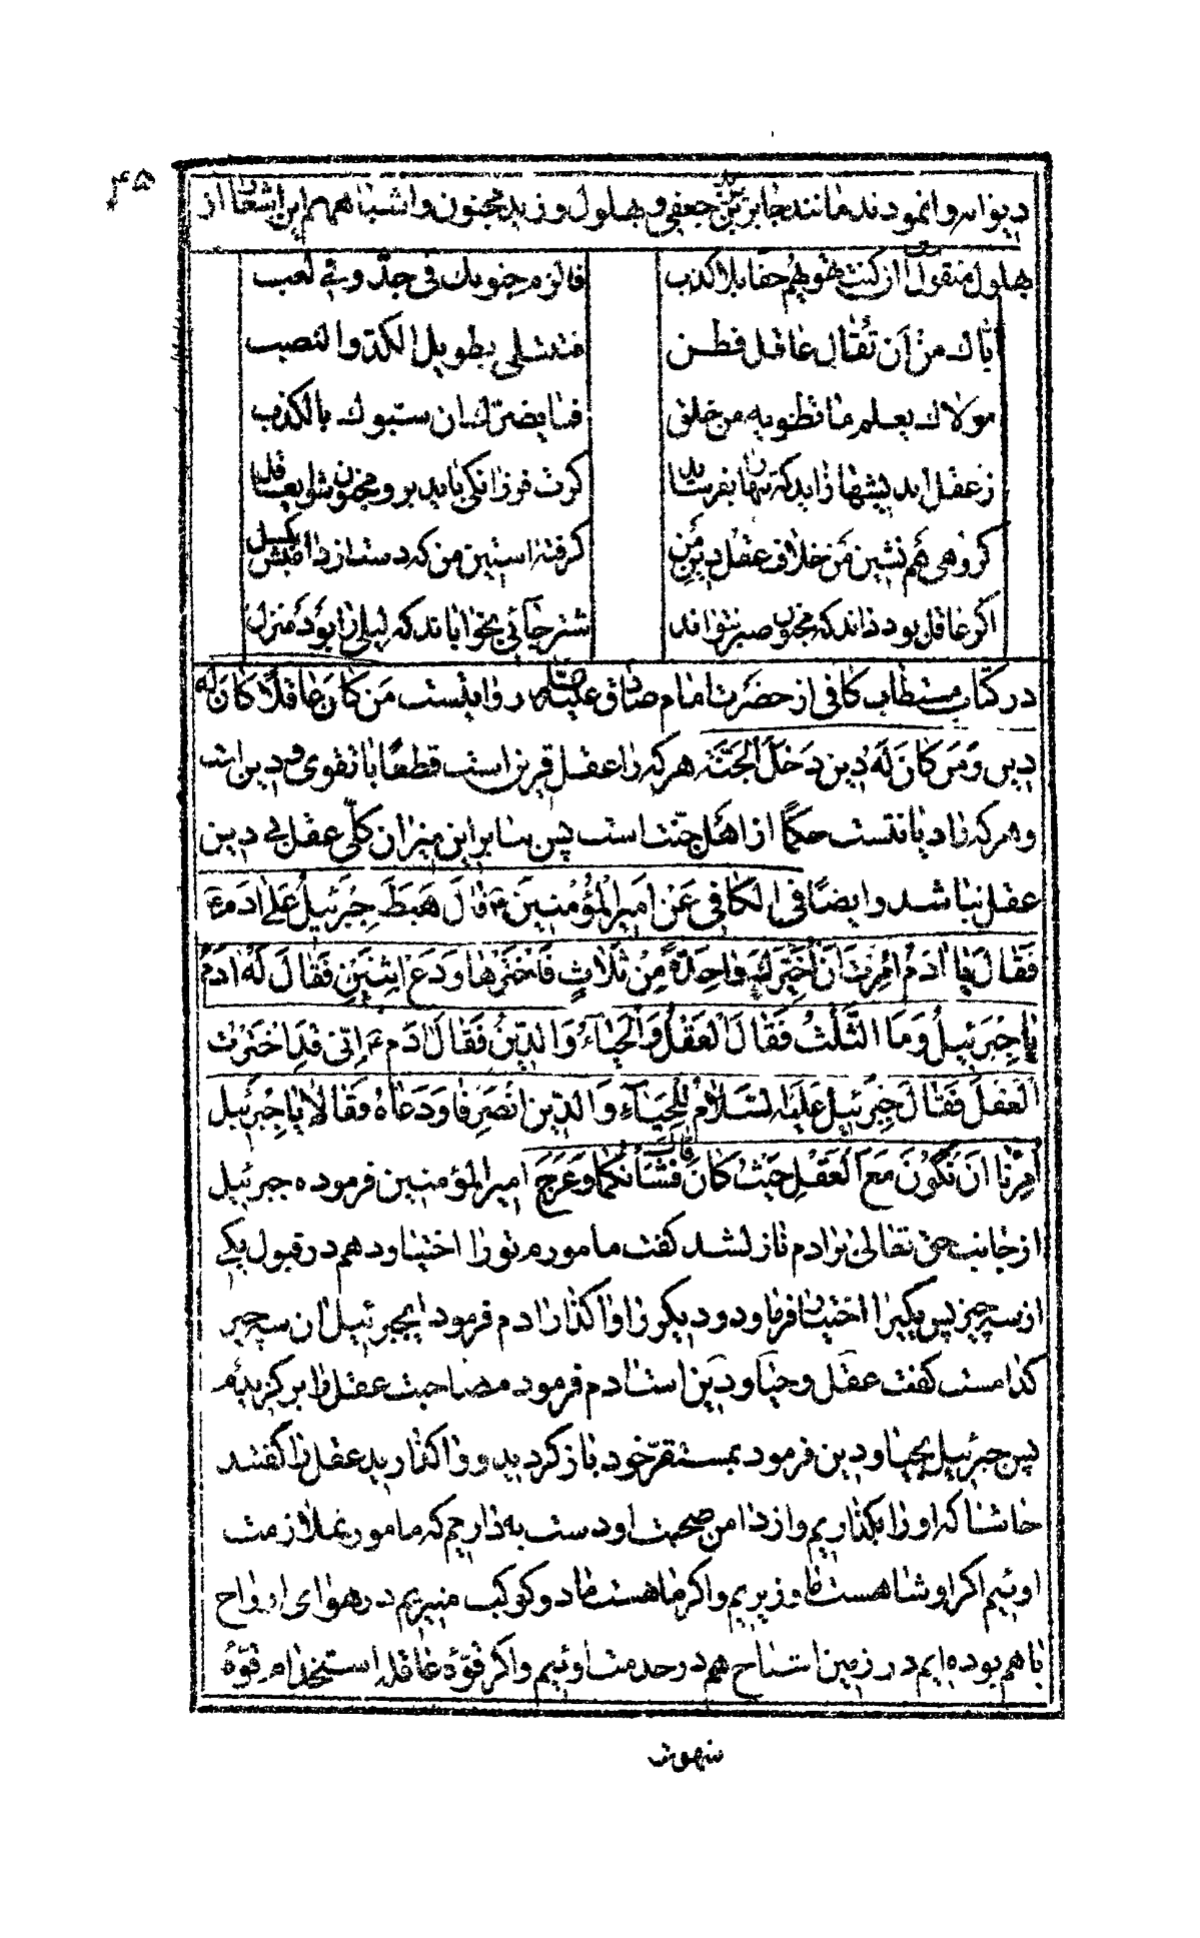 ۴۵
دیوانه وانمودند مانند جابر بن یزید جعفی و بهلول و زید مجنون و اشباههم این اشعار از
بهلول منقول است ان کنت تهویهم حقا بلا کذب فالزم جنونک فی جد و فی لعب
ایاک من ان تقال عاقل فطن فتبتلی بطویل الکد و النصب
مولاک یعلم ما تطویه من خلق فما یضرک ان سبوک بالکذب
ز عقل اندیشها زاید که تنها بفرساید گرت فرزانگی باید برو مجنون شو ای عاقل
گروهی هم نشین من خلاف عقل و دین من گرفته استین من که دست از دامنش بگسل
اگر عاقل بود داند که مجنون صبر نتواند شتر جائی بخواباند که لیلی را بود منزل
در کتاب مستطاب کافی از حضرت امام صادق علیه روایتست مَن کانَ عاقلًا کانَ لَه
دین وَمَن کانَ لَهُ دین دَخَلَ الجَنَّة هر که را عقل قرین است قطعًا با تقوی و دین است
و هر که را دیانتست حکمًا از اهل جنّت است پس بنا بر این میزان کلّی عقل بی دین
عقل نباشد و ایضًا فی الکافی عَنْ اَمیرِ الْمُؤْمِنینَ ع قالَ هَبَطَ جِبْرَئیلُ عَلی ادَمَ ع
فَقالَ یا ادَمُ اُمِرْتُ اَنْ اُخَیِّرَکَ واحِدَةً مِنْ ثَلاثٍ فَاخْتَرْها وَدَعَ اثْنَیْنِ فَقالَ لَهُ ادَمُ
یا جِبْرَئیلُ وَمَا الثَّلثُ فَقالَ الْعَقْلُ وَالْحَیاءُ وَالدّینُ فَقالَ ادَمُ ع اِنّی قَدِ اخْتَرْتُ
الْعَقْلَ فَقالَ جِبْرَئیلُ عَلَیْهِ السَّلامُ لِلْحَیاءِ وَالدّینِ انْصَرِفا وَدَعاهُ فَقالا یا جِبْرَئیل
اُمِرْنا اَنْ نَکُونَ مَعَ الْعَقْلِ حَیْثُ کانَ قالَ فَشَأْنَکُما وَعَرَجَ امیر المؤمنین فرموده جبرئیل
از جانب حق تعالی بر ادم نازل شد گفت مامورم تو را اختیار دهم در قبول یکی
از سه چیز پس یکیرا اختیار فرما و دو دیگر را واگذار ادم فرمود ایجبرئیل ان سه چیز
کدامست گفت عقل و حیا و دین است ادم فرمود مصاحبت عقل را برگزیدم
پس جبرئیل بحیا و دین فرمود بمستقر خود باز گردید و واگذارید عقل را گفتند
حاشا که او را بگذاریم و از دامن صحبت او دست به داریم که مامور بملازمت
اوئیم اگر او شاه است ما وزیریم و اگر ماه است ما دو کوکب منیریم در هوای ارواح
با هم بوده ایم در زمین اشباح هم در خدمت اوئیم و اگر قوّهٔ عاقله استخدام قوّهٔ
شهوت